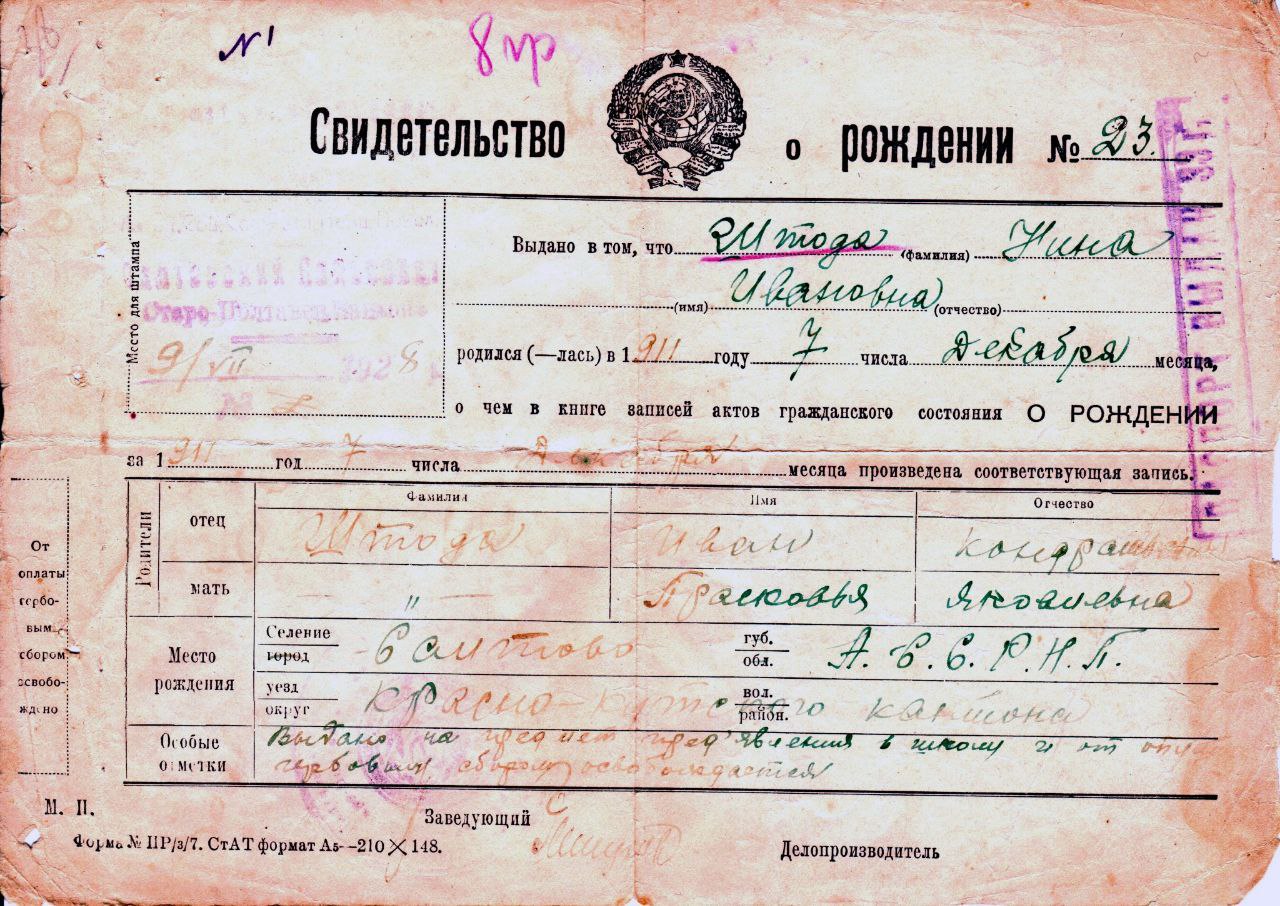 № 1
8 пр
Свидетельство о рождении № 23.
Место для штампа
Старо-Полтавского
9/VII 1928
№
Выдано в том, что Штода (фамилия) Нина
(имя) Ивановна (отчество)
родился (—лась) в 1911 году 7 числа Декабря месяца,
о чем в книге записей актов гражданского состояния О РОЖДЕНИИ
за 1911 год 7 числа Декабря месяца произведена соответствующая запись.
От оплаты гербо- вым сбором освобо- ждено
Родители
Фамилия Имя Отчество
отец Штода Иван
мать — " — Прасковья Яковлевна
Место рождения
Селение город Салтово губ. обл. А. С. С. Р. Н. П.
уезд округ Красно-Кутского вол. район. кантона
Особые отметки
Выдано на предмет пред'явления в школу и от
гербовым сбором освобождается
М. П.
Заведующий
Форма № ПР/з/7. СтАТ формат А5--210×148.
Делопроизводитель